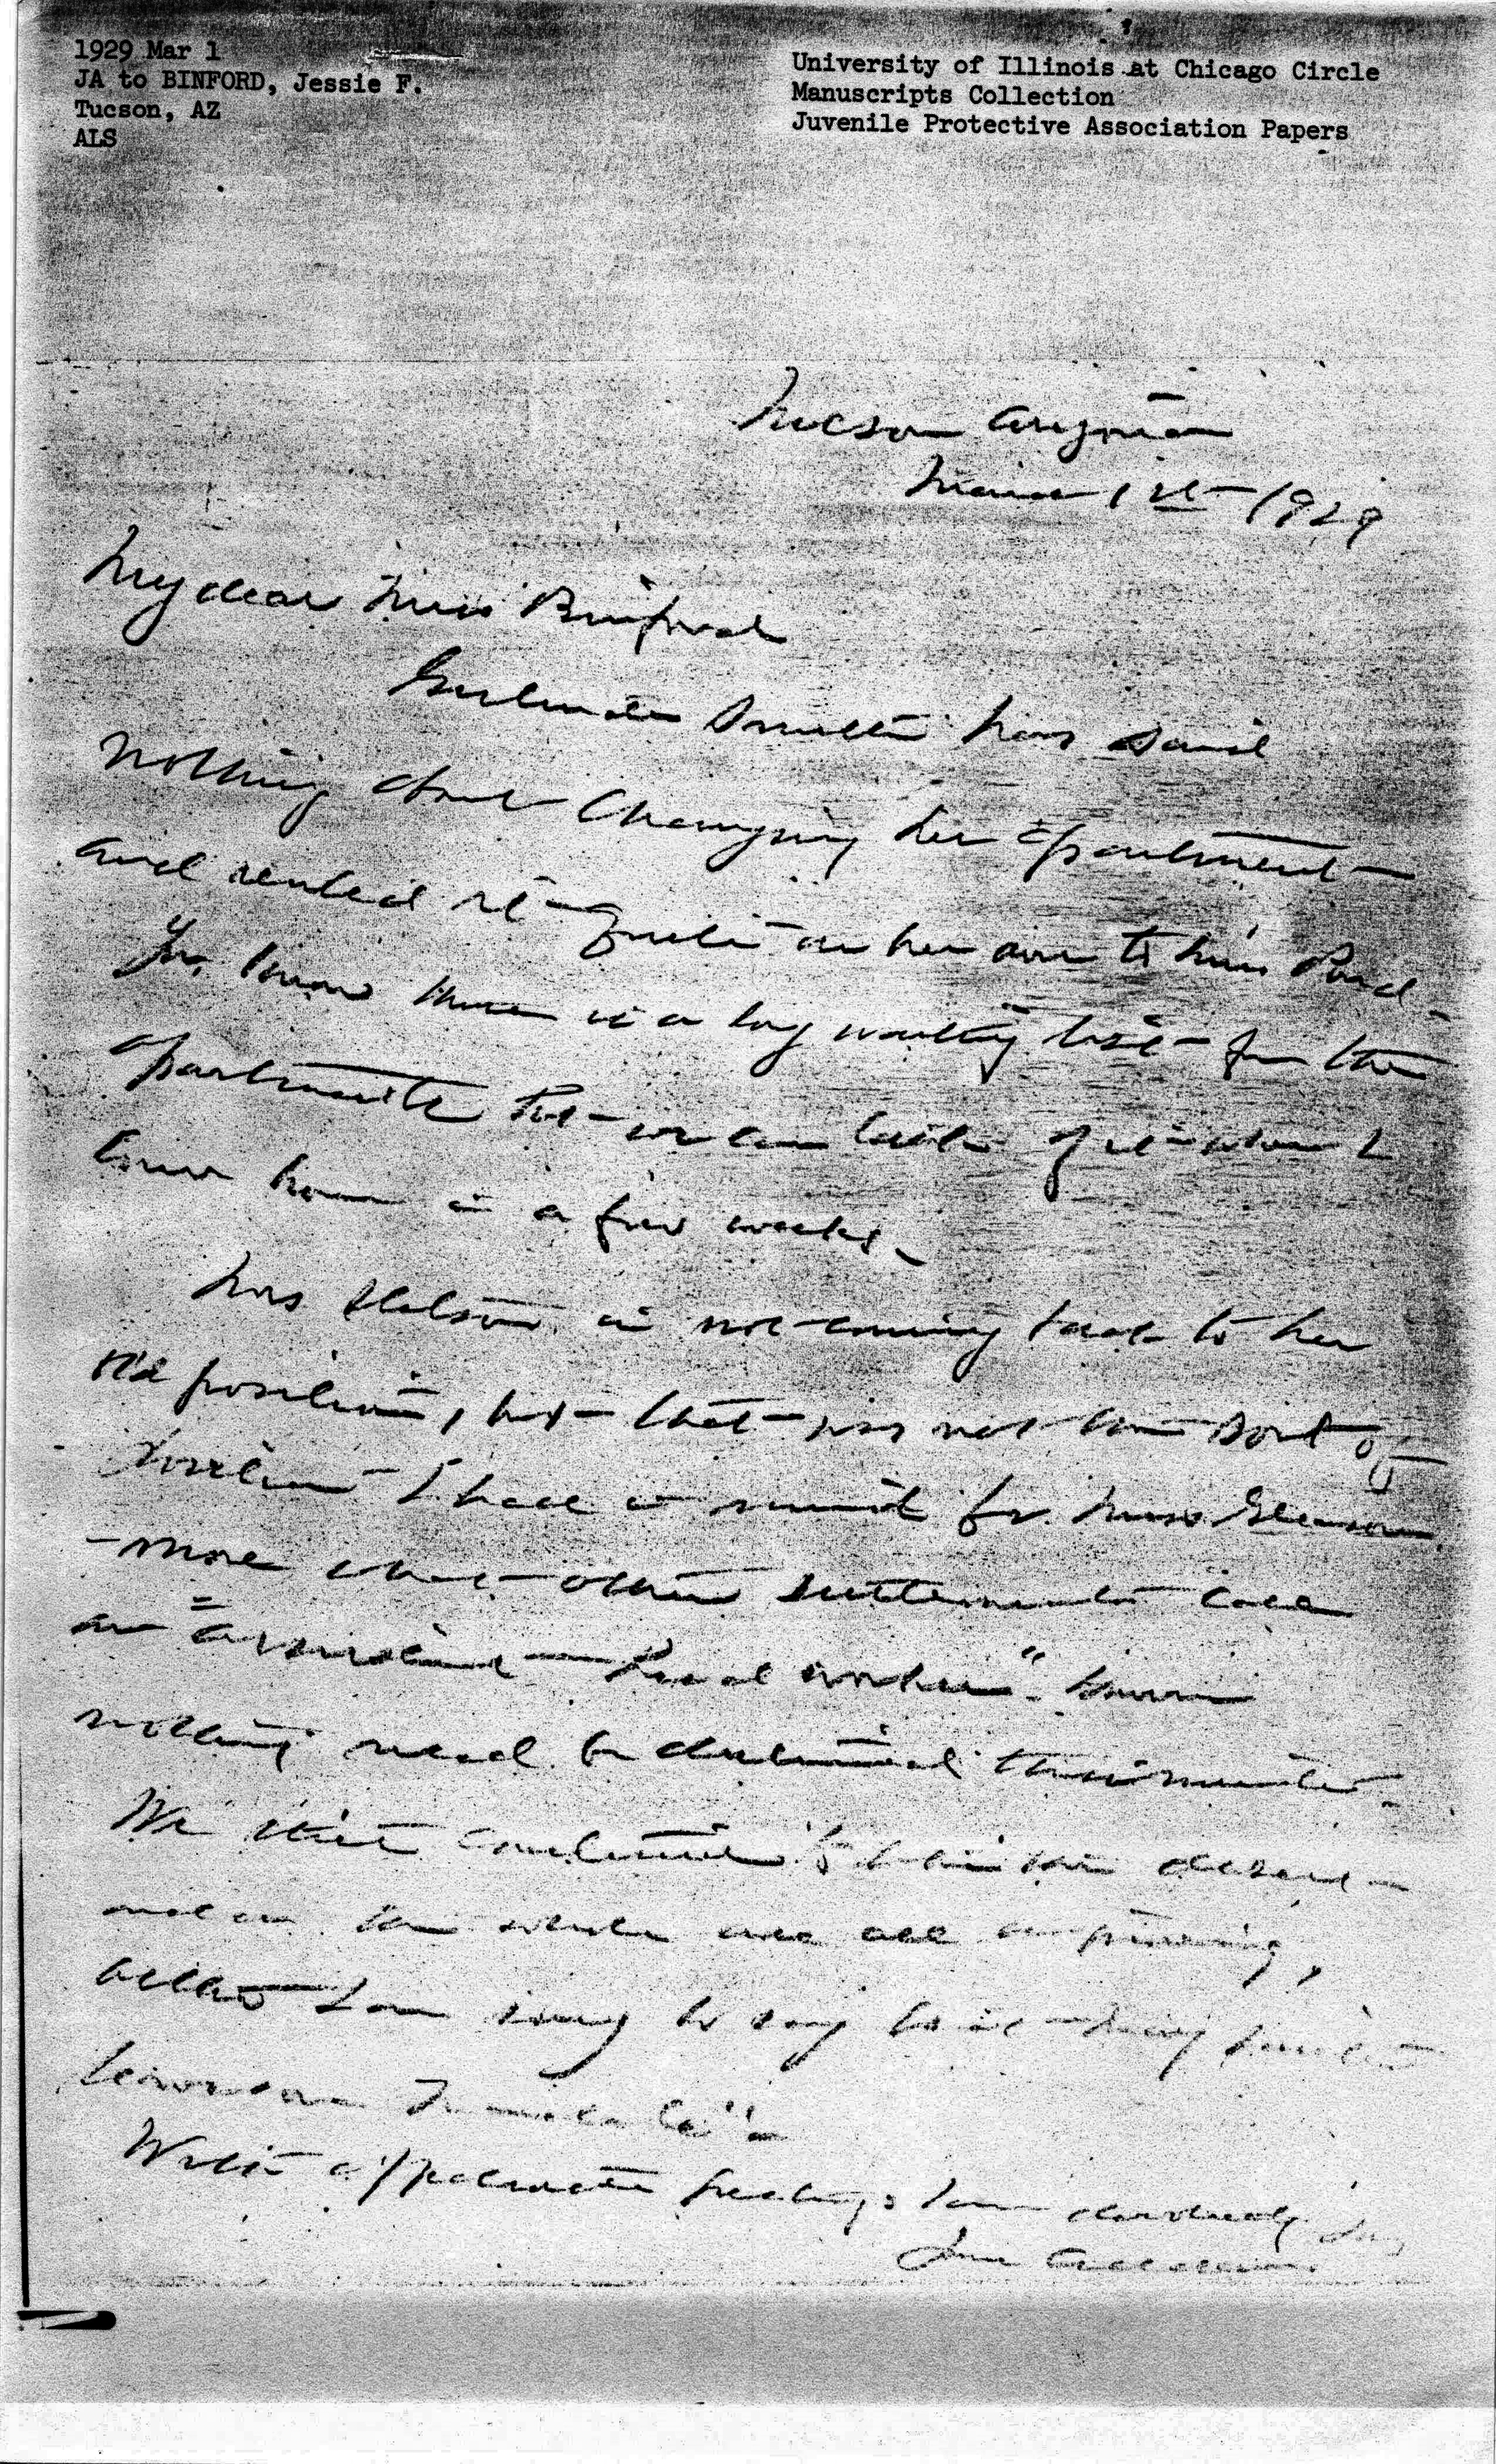 1929 Mar 1
JA to BINFORD, Jessie F.
Tucson, AZ
ALS
University of Illinois at Chicago Circle
Manuscripts Collection
Juvenile Protective Association Papers
Tucson Arizona
March 1st 1929
My dear Miss Binford
Gertrude Smith has said
nothing about changing her apartment
and rented it quite on her own to Miss Pond
You know there is a long waiting list for the
apartments but we can talk of it when I
come home in a few weeks
Mrs is not coming back to her
old position, but that was not the sort of
position I had in mind for Miss Gleason
- more what other settlements call
an "assistant head worker". However
nothing need be determined this minute.
We continue to the desert
and on the whole are all improving,
altho I am sorry to say
With appreciative greetings I am devotedly yrs
Jane Addams